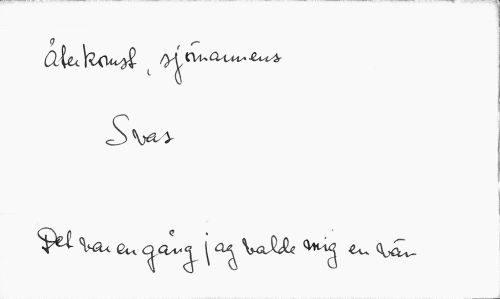 återkomst, sjömannens
Svas
Det var en gång jag valde mig en vän